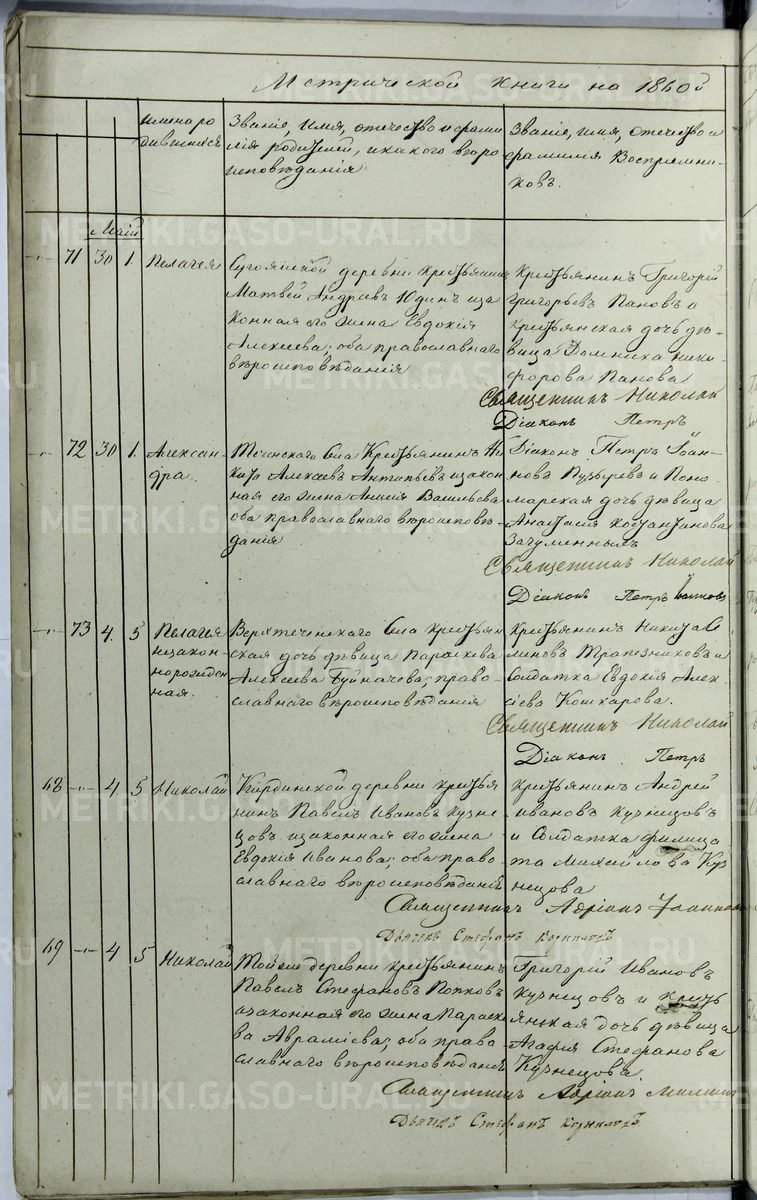 Метрической книги на 1860й
имена ро
дившихся
Званіе, имя, отечество и фами
лія родителей, и какого вѣро
исповѣданія
Званіе, имя, отечество и
фамилія Воспріемни-
ковъ.
Маій
71 30 1. Пелагея
Сугоякской деревни крестьянинъ
Матвей Андреевъ Юдинъ и за
конная его жена Евдокія
Алексеева; оба православнаго
вѣроисповѣданія
Крестьянинъ Григорій
Григорьевъ Пановъ и
крестьянская дочь дѣ-
вица Домника Ники-
форова Панова
Священникъ Николай
Діаконъ Петръ
72 30 1. Алексан-
дра.
Теченскаго Села Крестьянинъ Ни
кита Алексеевъ Антипьевъ и закон
ная его жена Анисія Васильева
оба православнаго вѣроисповѣ-
данія
Діаконъ Петръ Іоан-
новъ Пузыревъ и Поно-
марская дочь дѣвица
Анастасія Костантинова
Загуменныхъ
Священникъ Николай
Діаконъ Петръ
73 4. 5 Пелагея
незакон-
норожден-
ная.
Верхтеченскаго Села крестьян
ская дочь дѣвица Параскева
Алексеева Буйначева; право-
славнаго вѣроисповѣданія
Крестьянинъ Никита Се-
миновъ Трапезниковъ и
Солдатка Евдокія Алек-
сіева Кошкарова.
Священникъ Николай
Діаконъ Петръ
68 4 5 Николай
Кирдинской деревни крестья
нинъ Павелъ Ивановъ Кузне
цовъ и законная его жена
Евдокія Иванова; оба право-
славнаго вѣроисповѣданія
Крестьянинъ Андрей
Ивановъ Кузнецовъ
и Солдатка Филица
та Михайлова Куз
нецова
Священникъ Адріанъ
Дьячекъ Стефанъ
69 4 5 Николай
Той же деревни крестьянинъ
Павелъ Стефановъ Попковъ
и законная его жена Параске
ва Авраміева; оба право
славнаго вѣроисповѣданія
Григорій Ивановъ
Кузнецовъ и Кресть
янская дочь дѣвица
Агафія Стефанова
Кузнецова.
Священникъ Адріанъ
Дьячекъ Стефанъ
METRIKI.GASO-URAL.RU
METRIKI.GASO-URAL.RU
METRIKI.GASO-URAL.RU
METRIKI.GASO-URAL.RU
METRIKI.GASO-URAL.RU
METRIKI.GASO-URAL.RU
METRIKI.GASO-URAL.RU